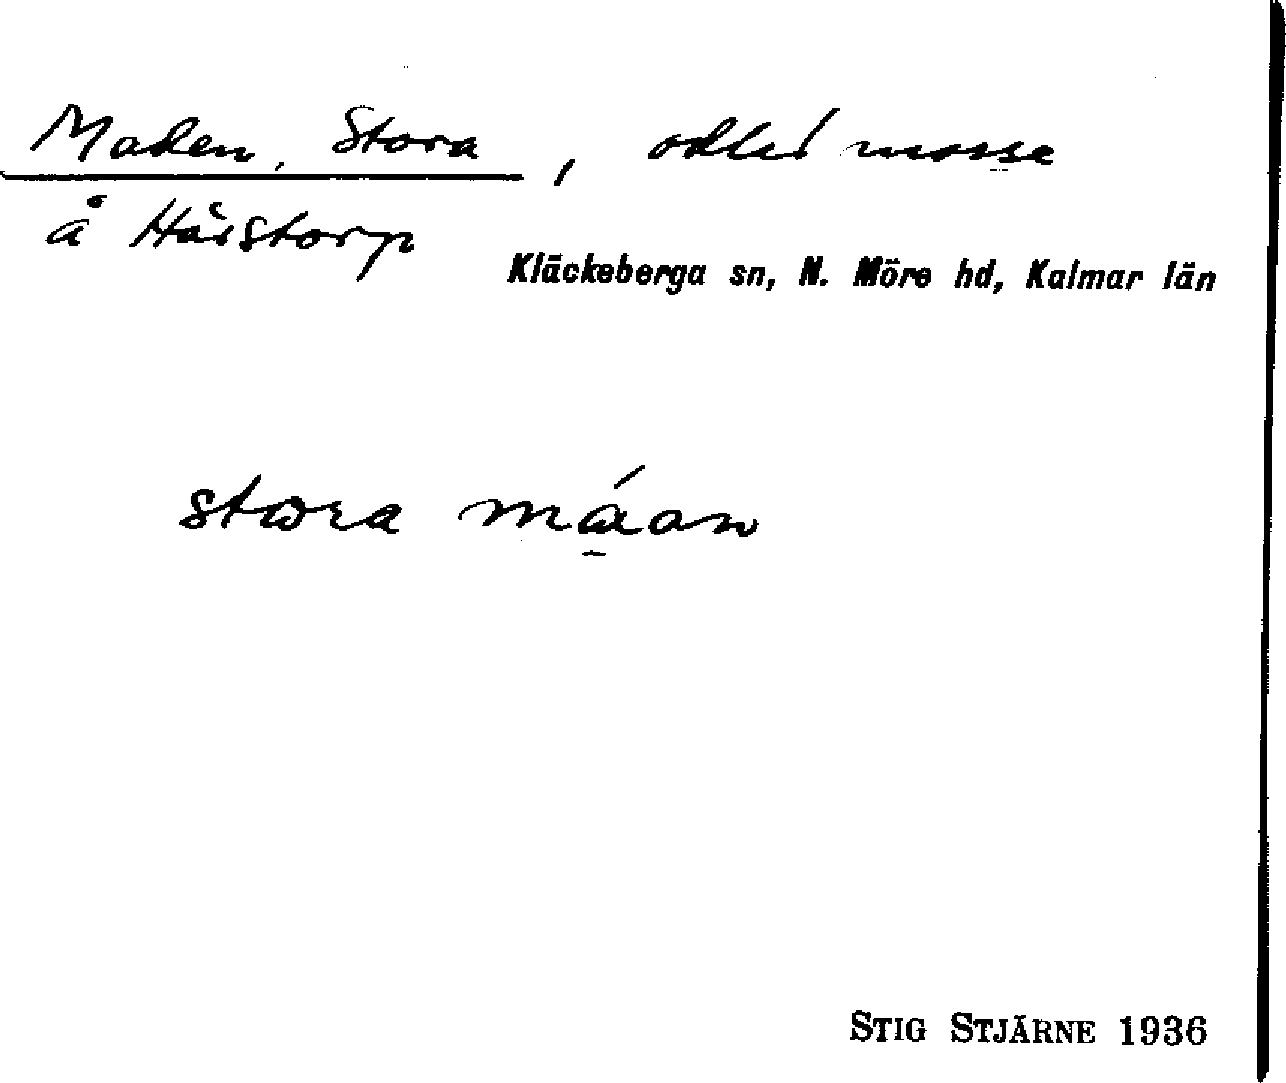 Maden, Stora, odlad mosse
å Harstorp
Kläckeberga sn, N. Möre hd, Kalmar län
stora máan
STIG STJÄRNE 1936